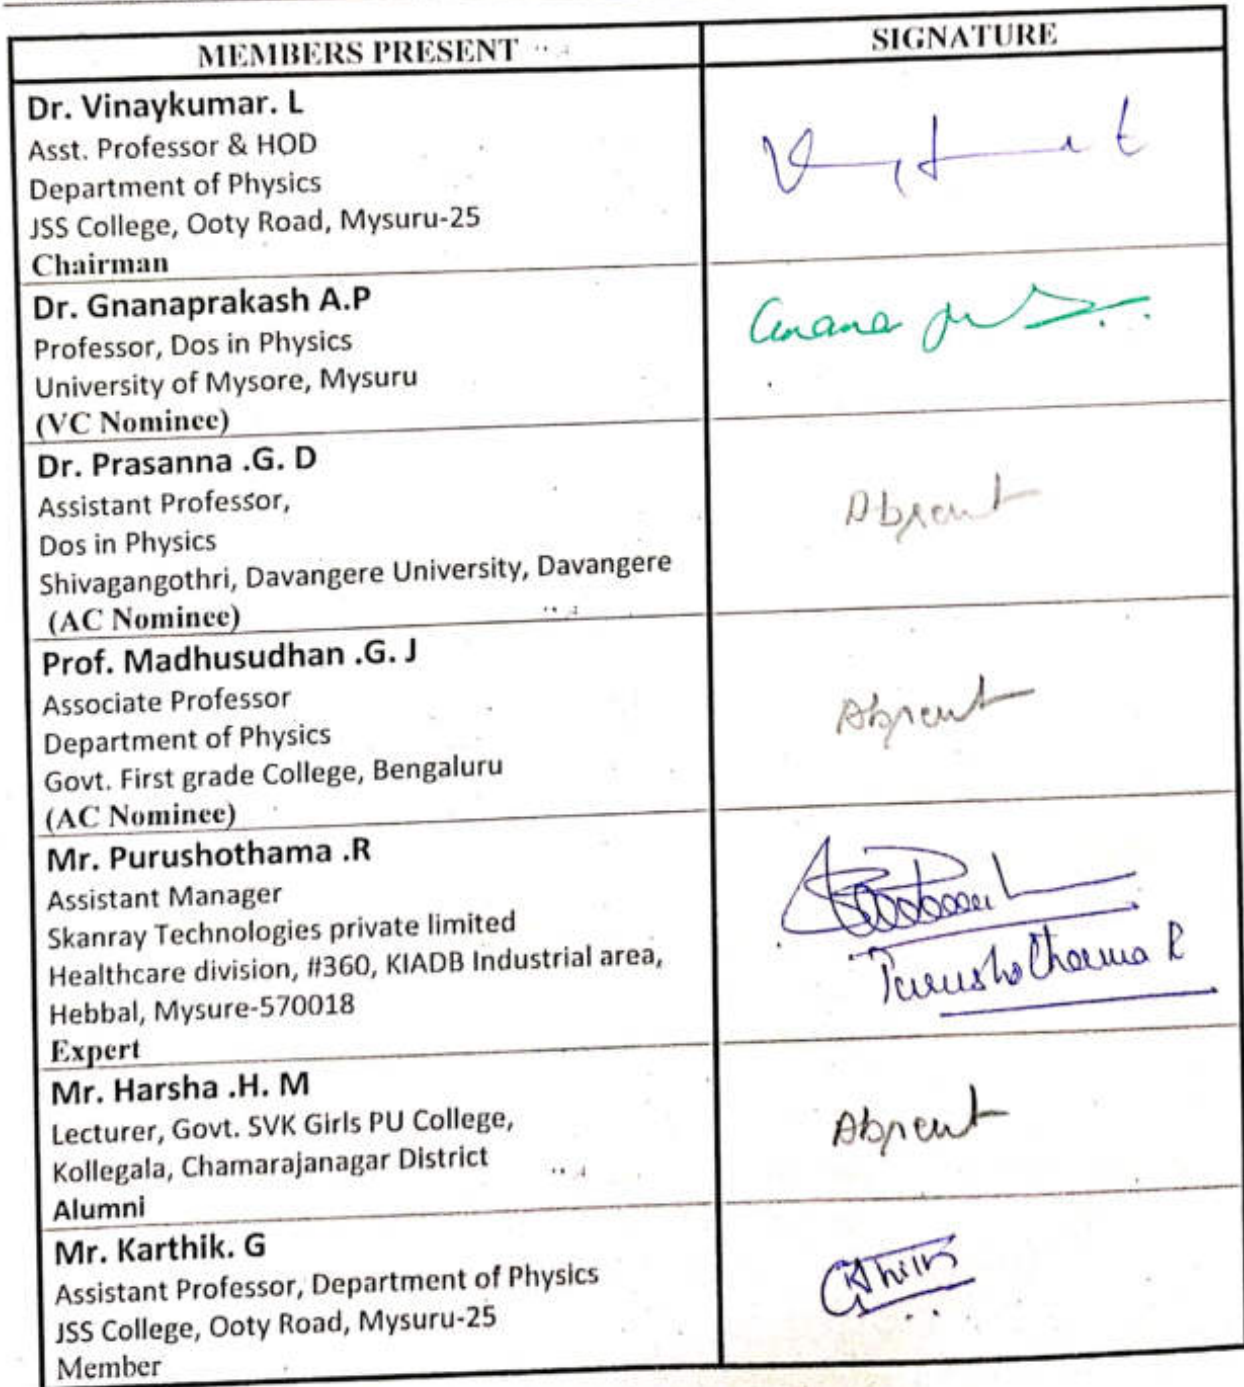 MEMBERS PRESENT
SIGNATURE
Dr. Vinaykumar. L
Asst. Professor & HOD
Department of Physics
JSS College, Ooty Road, Mysuru-25
Chairman
Dr. Gnanaprakash A.P
Professor, Dos in Physics
University of Mysore, Mysuru
(VC Nominee)
Dr. Prasanna .G. D
Assistant Professor,
Dos in Physics
Shivagangothri, Davangere University, Davangere
(AC Nominee)
Absent
Prof. Madhusudhan .G. J
Associate Professor
Department of Physics
Govt. First grade College, Bengaluru
(AC Nominee)
Absent
Mr. Purushothama .R
Assistant Manager
Skanray Technologies private limited
Healthcare division, #360, KIADB Industrial area,
Hebbal, Mysure-570018
Expert
Purushothama R
Mr. Harsha .H. M
Lecturer, Govt. SVK Girls PU College,
Kollegala, Chamarajanagar District
Alumni
Absent
Mr. Karthik. G
Assistant Professor, Department of Physics
JSS College, Ooty Road, Mysuru-25
Member